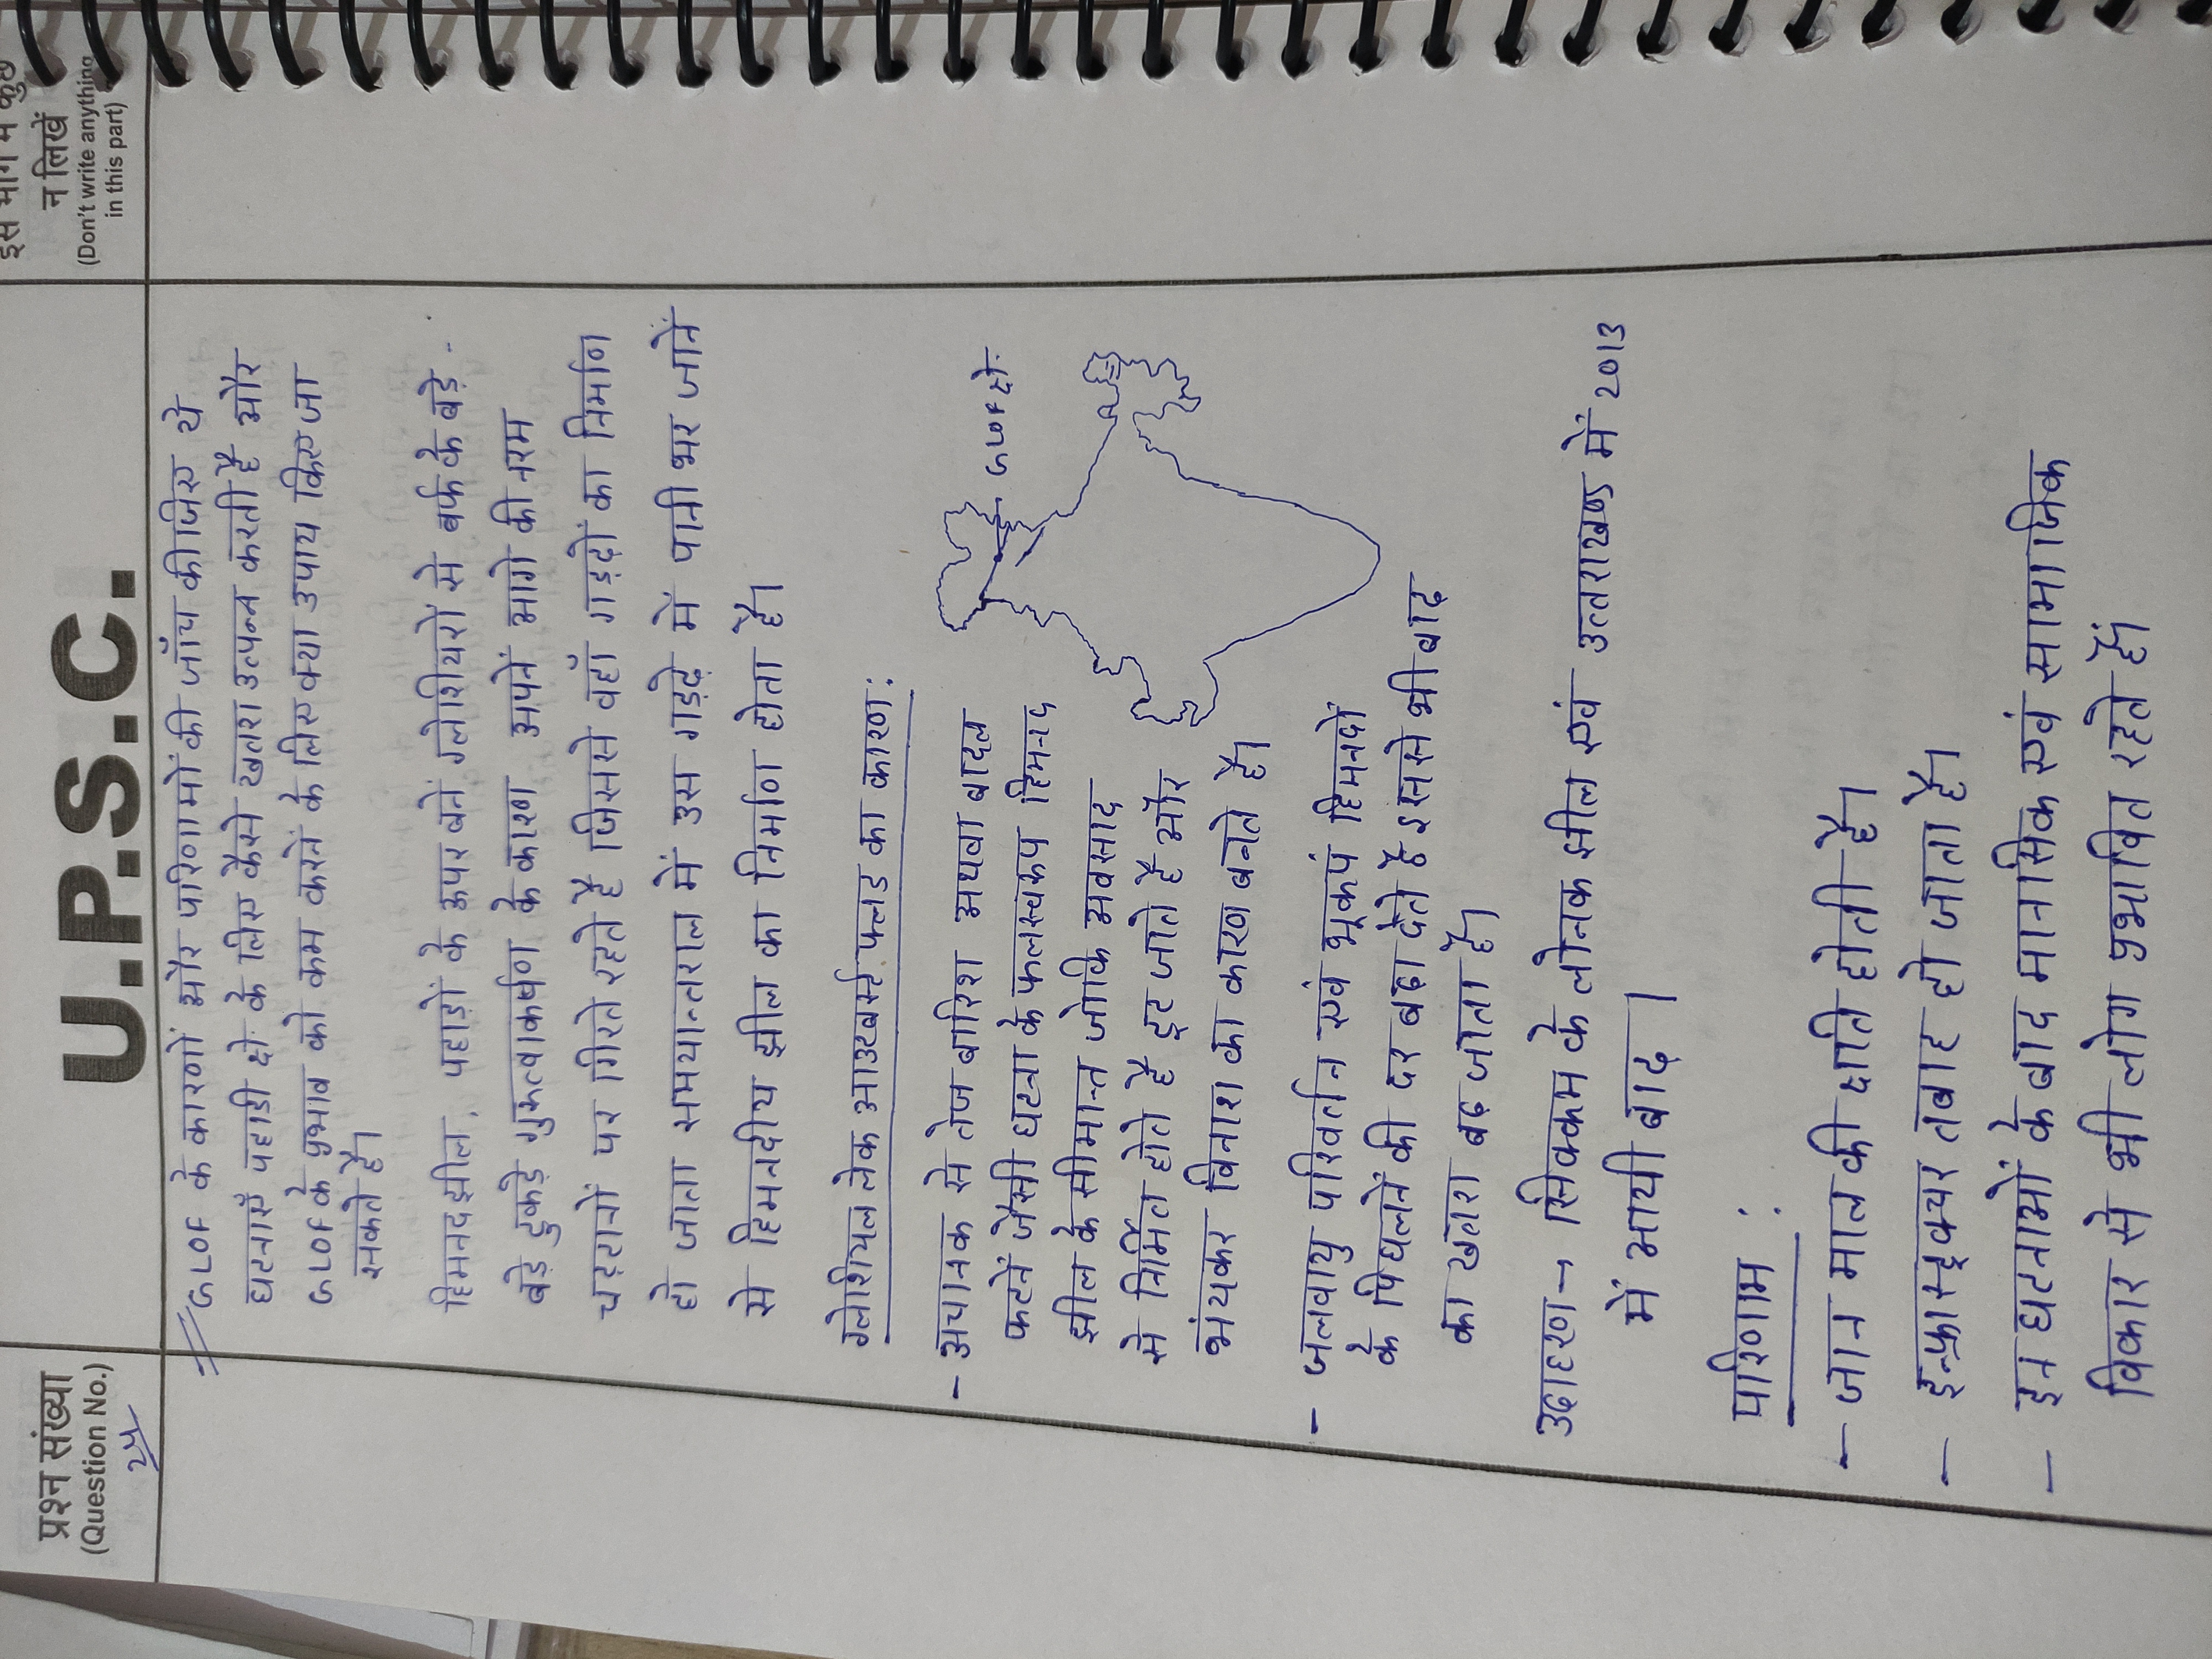 U.P.S.C.
प्रश्न संख्या
(Question No.)
इस भाग में कुछ
न लिखें
(Don't write anything
in this part)
GLOF के कारणों और परिणामों की जाँच कीजिए ये
घटनाएँ पहाडी क्षे. के लिए कैसे खतरा उत्पन्न करती है और
GLOF के प्रभाव को कम करनें के लिए क्या उपाय किए जा
सकते है।
हिमनद झील, पहाड़ों के ऊपर बनें ग्लेशियरों से बर्फ के बड़े-
बड़े टुकड़े गुरूत्वाकर्षण के कारण अपनें आगे की नरम
चट्टानों पर गिरते रहते है जिससे वहाँ गड्ढों का निर्माण
हो जाता समयान्तराल में उस गड्ढे में पानी भर जानें
से हिमनदीय झील का निर्माण होता है।
ग्लेशियल लेक आउटबर्स्ट फ्लड का कारण:
- अचानक से तेज बारिश अथवा बादल
फटनें जैसी घटना के फलस्वरूप हिमनद
झील के सीमान्त जोकि अवसाद
से निर्मित होते है टूट जाते है और
भंयकर विनाश का कारण बनते है।
GLOF क्षे.
- जलवायु परिवर्तन एवं भूकपं हिमनदों
के पिघलनें की दर बढ़ा देते है इससे भी बाढ़
का खतरा बढ़ जाता है।
उदाहरण → सिक्कम के लोनक झील एवं उत्तराखण्ड में 2013
में आयी बाढ़।
परिणाम :
- जान माल की क्षति होती है।
- इन्फ्रास्ट्रक्चर तबाह हो जाता है।
- इन घटनाओं के बाद मानसिक एवं सामाजिक
विकार से भी लोग प्रभावित रहते हैं।